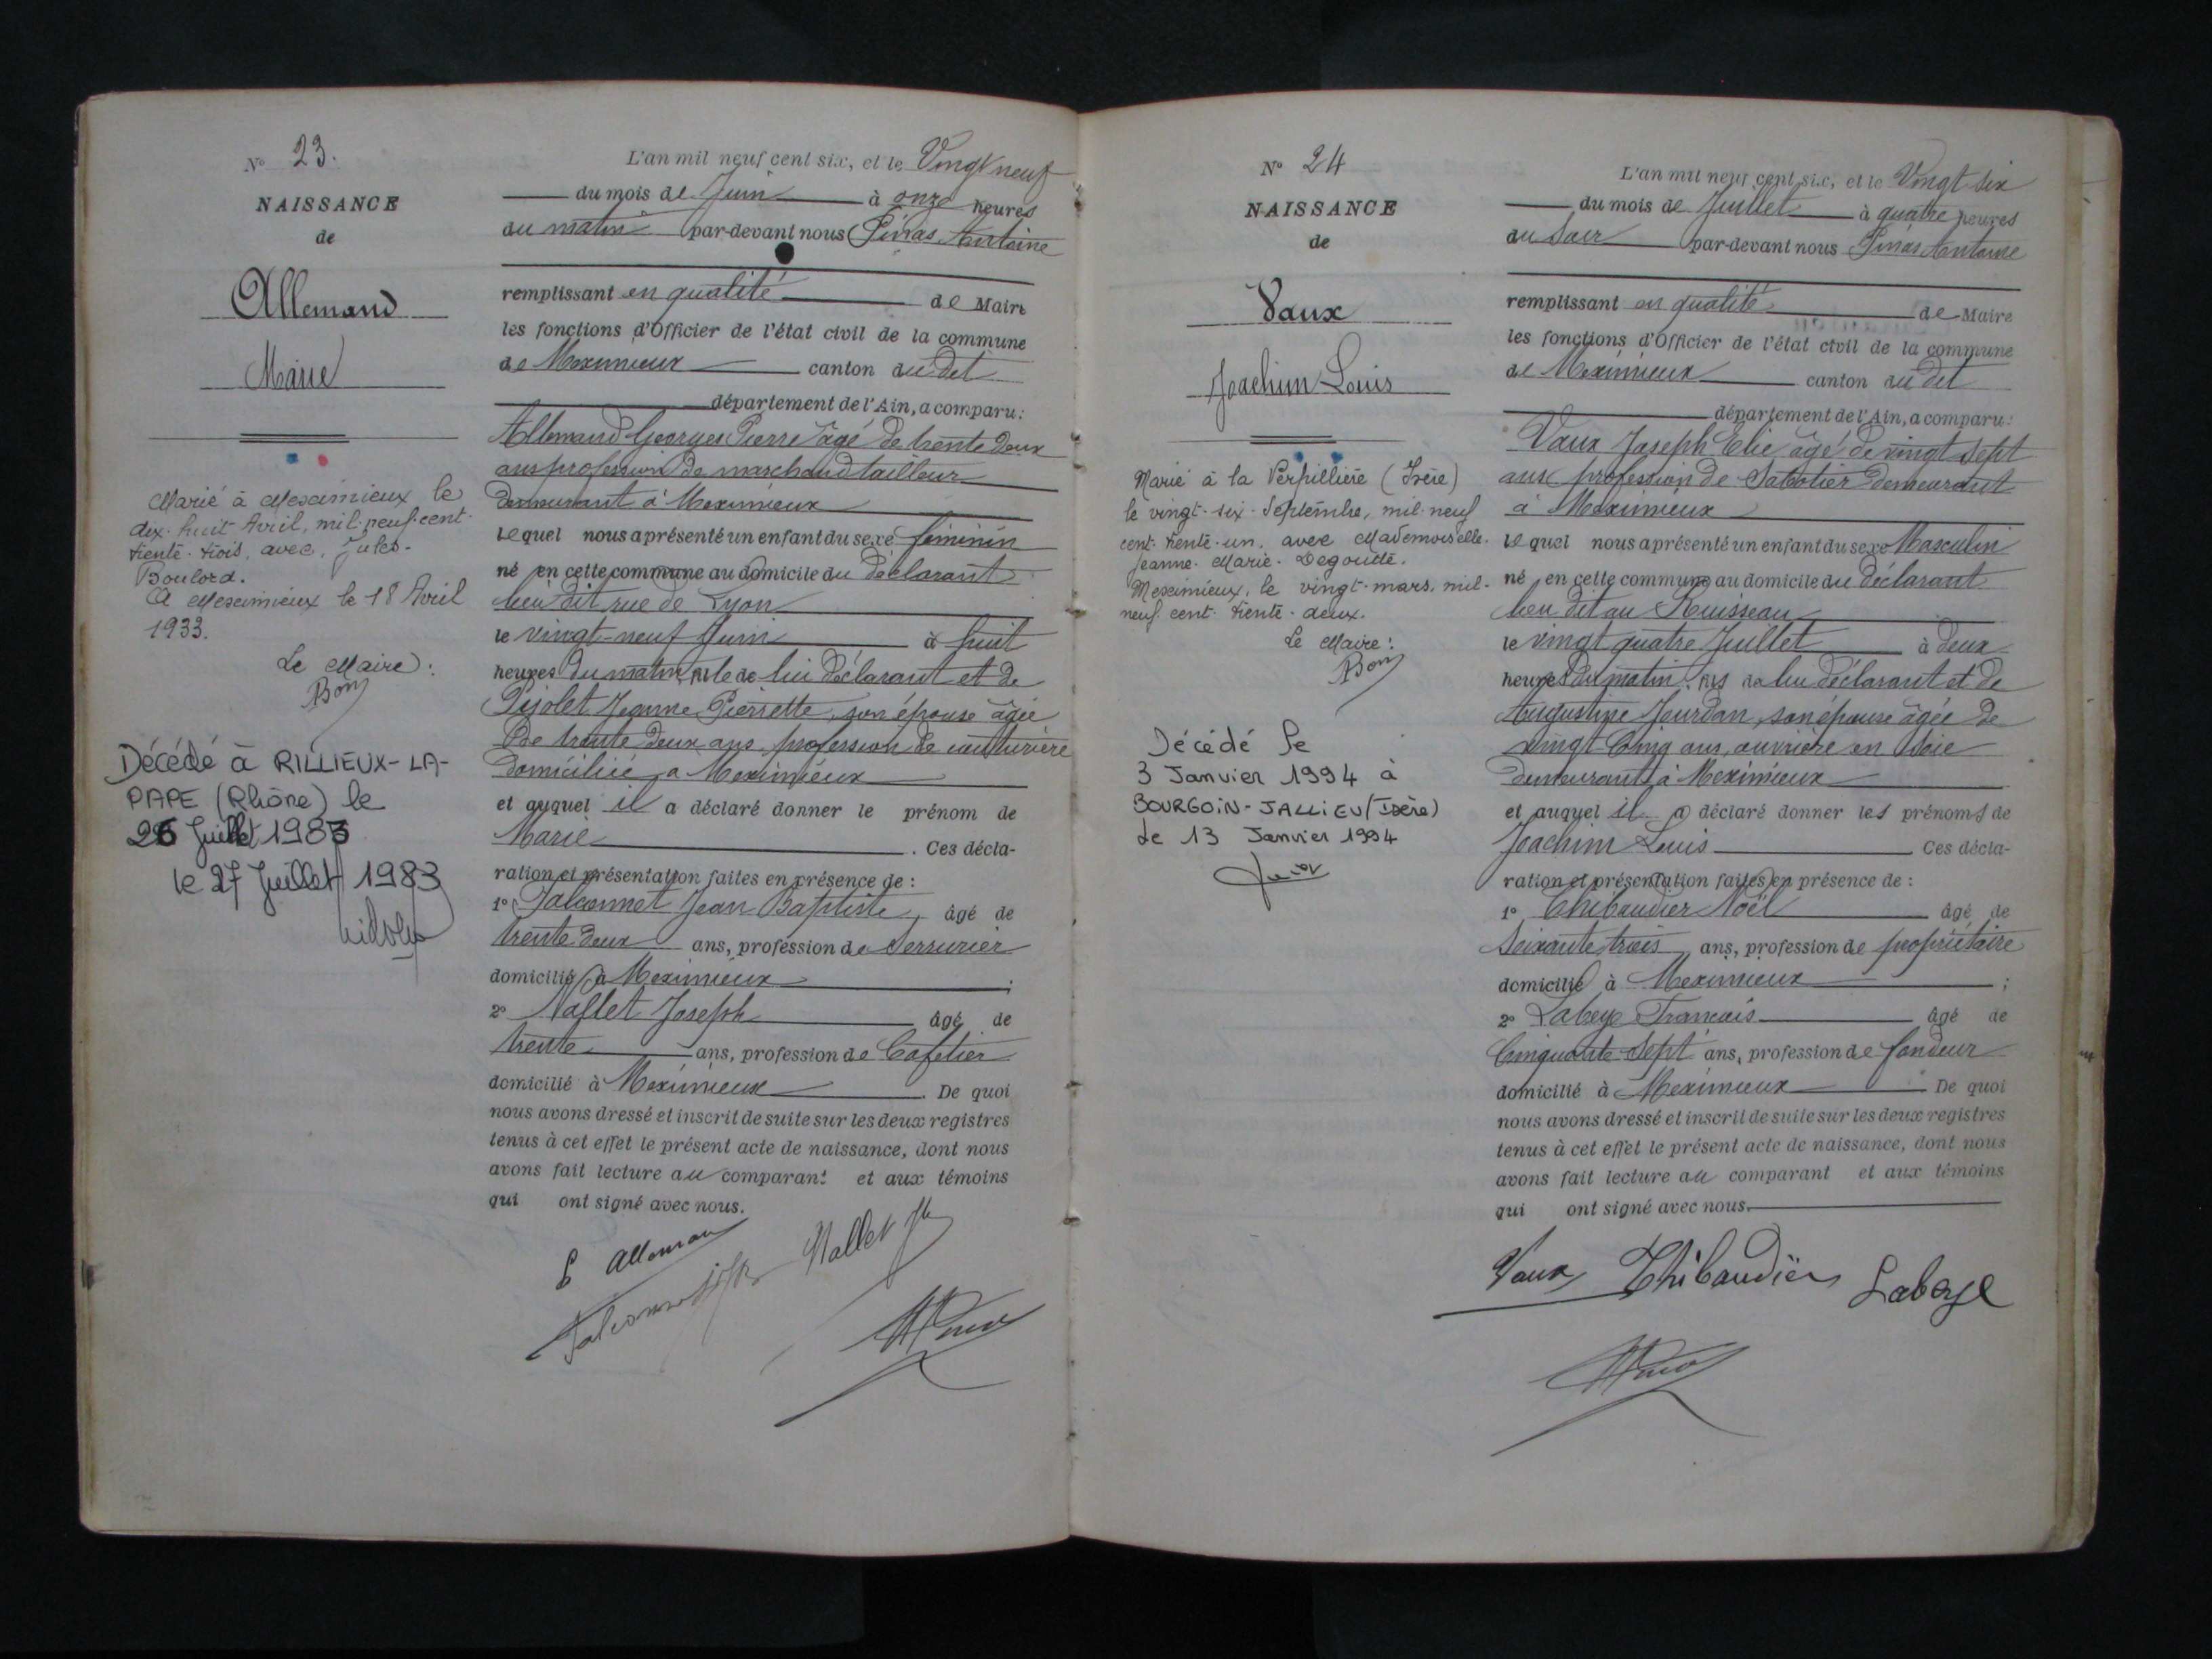 N° 23.
NAISSANCE
de
Allemand
Marie
Marié à Meximieux le
dix-huit Avril, mil-neuf-cent-
trente-trois, avec, Jules-
Boulord.
A Meximieux le 18 Avril
1933.
Le Maire:
Bon
Décédé à RILLIEUX-LA-
PAPE (Rhône) le
26 Juillet 1983
le 27 Juillet 1983
L'an mil neuf cent six, et le Vingt neuf
du mois de Juin à onze heures
du matin par-devant nous Pinas Antoine
remplissant en qualité de Maire
les fonctions d'Officier de l'état civil de la commune
de Meximieux canton du dit
département de l'Ain, a comparu:
Allemand Georges Pierre âgé de trente deux
ans profession de marchand tailleur
demeurant à Meximieux
Lequel nous a présenté un enfant du sexe féminin
né en cette commune au domicile du déclarant
lieu dit rue de Lyon
le vingt-neuf Juin à huit
heures du matin, fille de lui déclarant et de
Pijolet Jeanne Pierrette, son épouse âgée
de trente deux ans profession de couturière
domiciliée à Meximieux
et auquel il a déclaré donner le prénom de
Marie. Ces décla-
ration et présentation faites en présence de:
1° Falconnet Jean Baptiste, âgé de
trente deux ans, profession de Serrurier
domicilié à Meximieux;
2° Nallet Joseph âgé de
trente ans, profession de Cafetier
domicilié à Meximieux. De quoi
nous avons dressé et inscrit de suite sur les deux registres
tenus à cet effet le présent acte de naissance, dont nous
avons fait lecture au comparant et aux témoins
qui ont signé avec nous.
Alleman
Nallet Jh
Falconnet
N° 24
NAISSANCE
de
Vaux
Joachim Louis
Marié à la Verpillière (Isère)
le vingt-six-Septembre, mil-neuf
cent-trente-un, avec Mademoiselle-
Jeanne-Marie-Degoutte.
Meximieux, le vingt-mars, mil-
neuf-cent-trente-deux.
Le Maire:
Bon
Décédé le
3 Janvier 1994 à
BOURGOIN-JALLIEU (Isère)
Le 13 Janvier 1994
L'an mil neuf cent six, et le Vingt-six
du mois de Juillet à quatre heures
du soir par-devant nous Pinas Antoine
remplissant en qualité de Maire
les fonctions d'Officier de l'état civil de la commune
de Meximieux canton du dit
département de l'Ain, a comparu:
Vaux Joseph Elie âgé de vingt sept
ans profession de Sabotier demeurant
à Meximieux
lequel nous a présenté un enfant du sexe Masculin
né en cette commune au domicile du déclarant
lieu dit au Ruisseau
le vingt quatre Juillet à deux
heures du matin, fils de lui déclarant et de
Augustine Jourdan, son épouse âgée de
vingt cinq ans, ouvrière en Soie
demeurant à Meximieux
et auquel il a déclaré donner les prénoms de
Joachim Louis Ces décla-
ration et présentation faites en présence de:
1° Thibaudier Noël âgé de
Soixante trois ans, profession de propriétaire
domicilié à Meximieux;
2° Labeye François âgé de
Cinquante-Sept ans, profession de fondeur
domicilié à Meximieux De quoi
nous avons dressé et inscrit de suite sur les deux registres
tenus à cet effet le présent acte de naissance, dont nous
avons fait lecture au comparant et aux témoins
qui ont signé avec nous.
Vaux Thibaudier Labeye